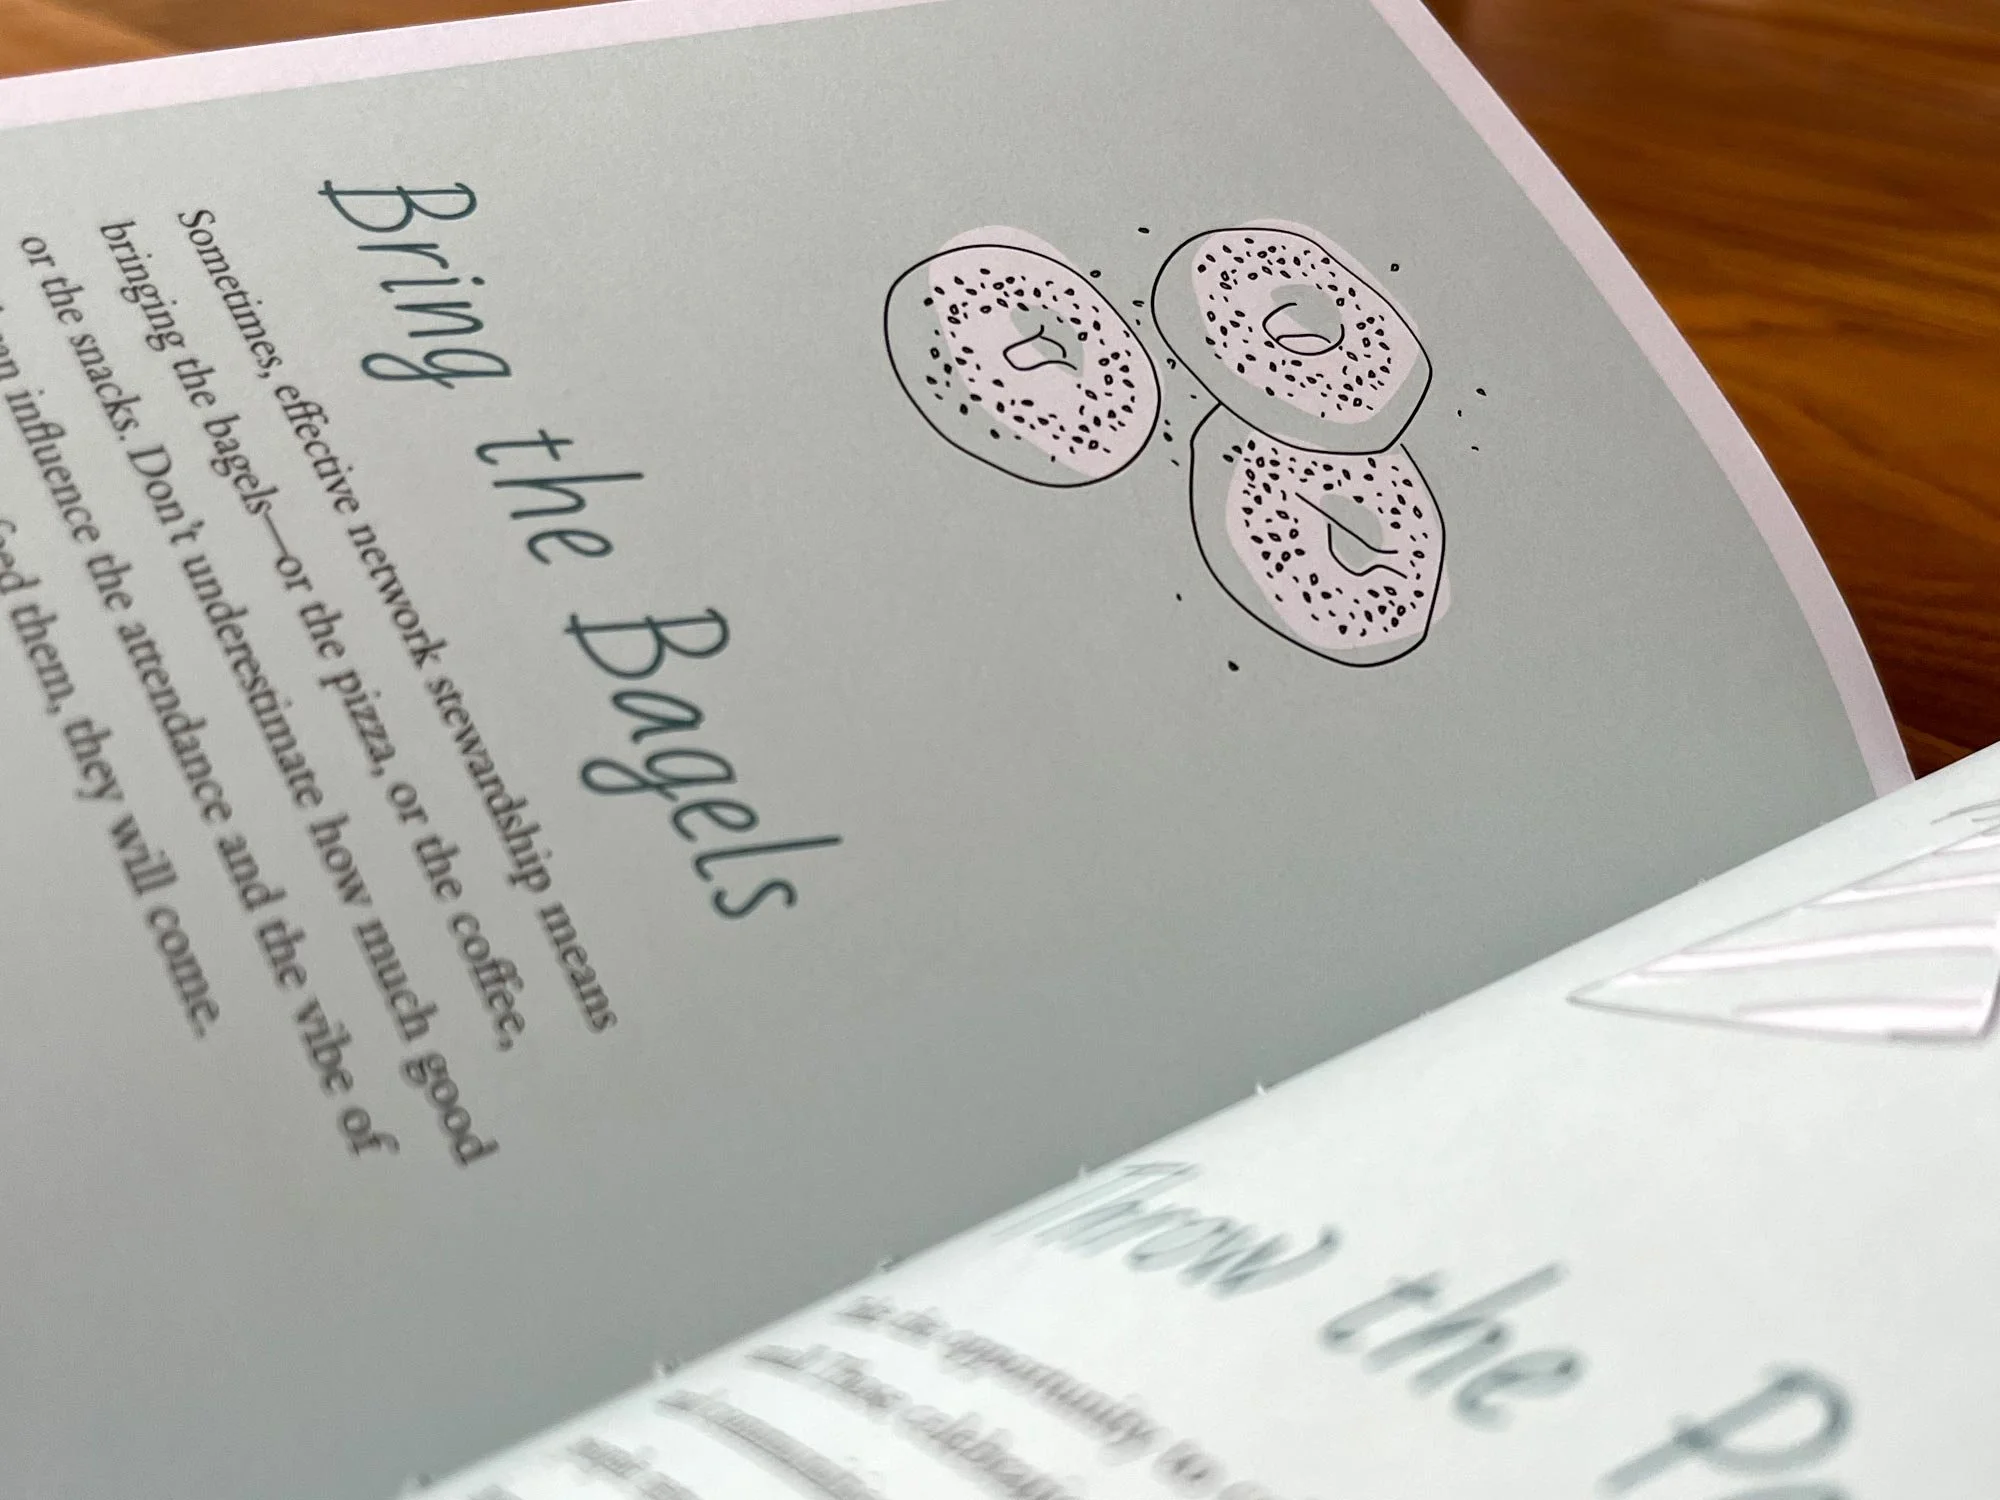 Bring the Bagels
Sometimes, effective network stewardship means
bringing the bagels—or the pizza, or the coffee,
or the snacks. Don't underestimate how much good
influence the attendance and the vibe of
them, they will come.
Throw the
the opportunity to
and